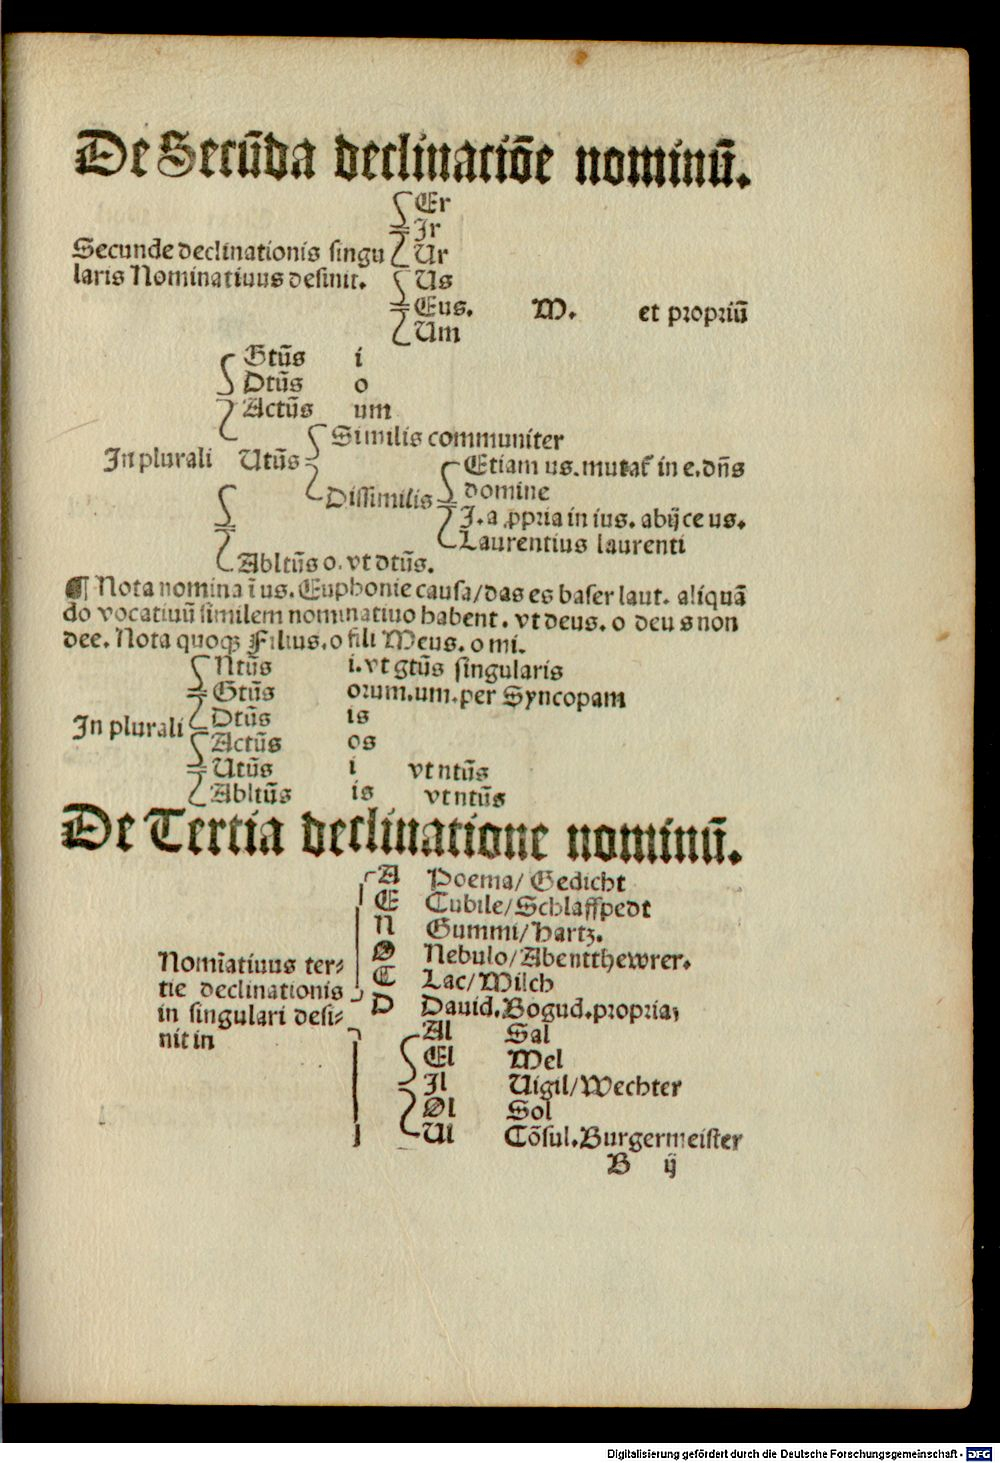 De Secūda declinaciōe nominū.
Er
Ir
Secunde declinationis singu Ur
laris Nominatiuus desinit. Us
Eus. M. et propriū
Um
Gtūs i
Dtūs o
Actūs um
Similis communiter
In plurali Utūs
Etiam us. mutat in e. dn̄s
Dissimilis domine
I. a ꝓpria in ius. abijce us.
Laurentius laurenti
Abltūs o. vt dtūs.
¶ Nota nomina ī us. Euphonie causa/das es baser laut. aliquā
do vocatiuū similem nominatiuo habent. vt deus. o deus non
dee. Nota quoqꝫ Filius. o fili Meus. o mi.
Ntūs i. vt gtūs singularis
Gtūs orum. um. per Syncopam
In plurali Dtūs is
Actūs os
Utūs i vt ntūs
Abltūs is vt ntūs
De Tertia declinatione nominū.
A Poema/ Gedicht
E Cubile/Schlaffpedt
N Gummi/hartz.
O Nebulo/Abentthewrer.
Nomīatiuus ter⸗
C Lac/Milch
tie declinationis
D Dauid. Bogud. propria;
in singulari desi⸗
Al Sal
nit in
El Mel
Il Uigil/Wechter
Ol Sol
Ul Cōsul. Burgermeister
B ij
Digitalisierung gefördert durch die Deutsche Forschungsgemeinschaft - DFG